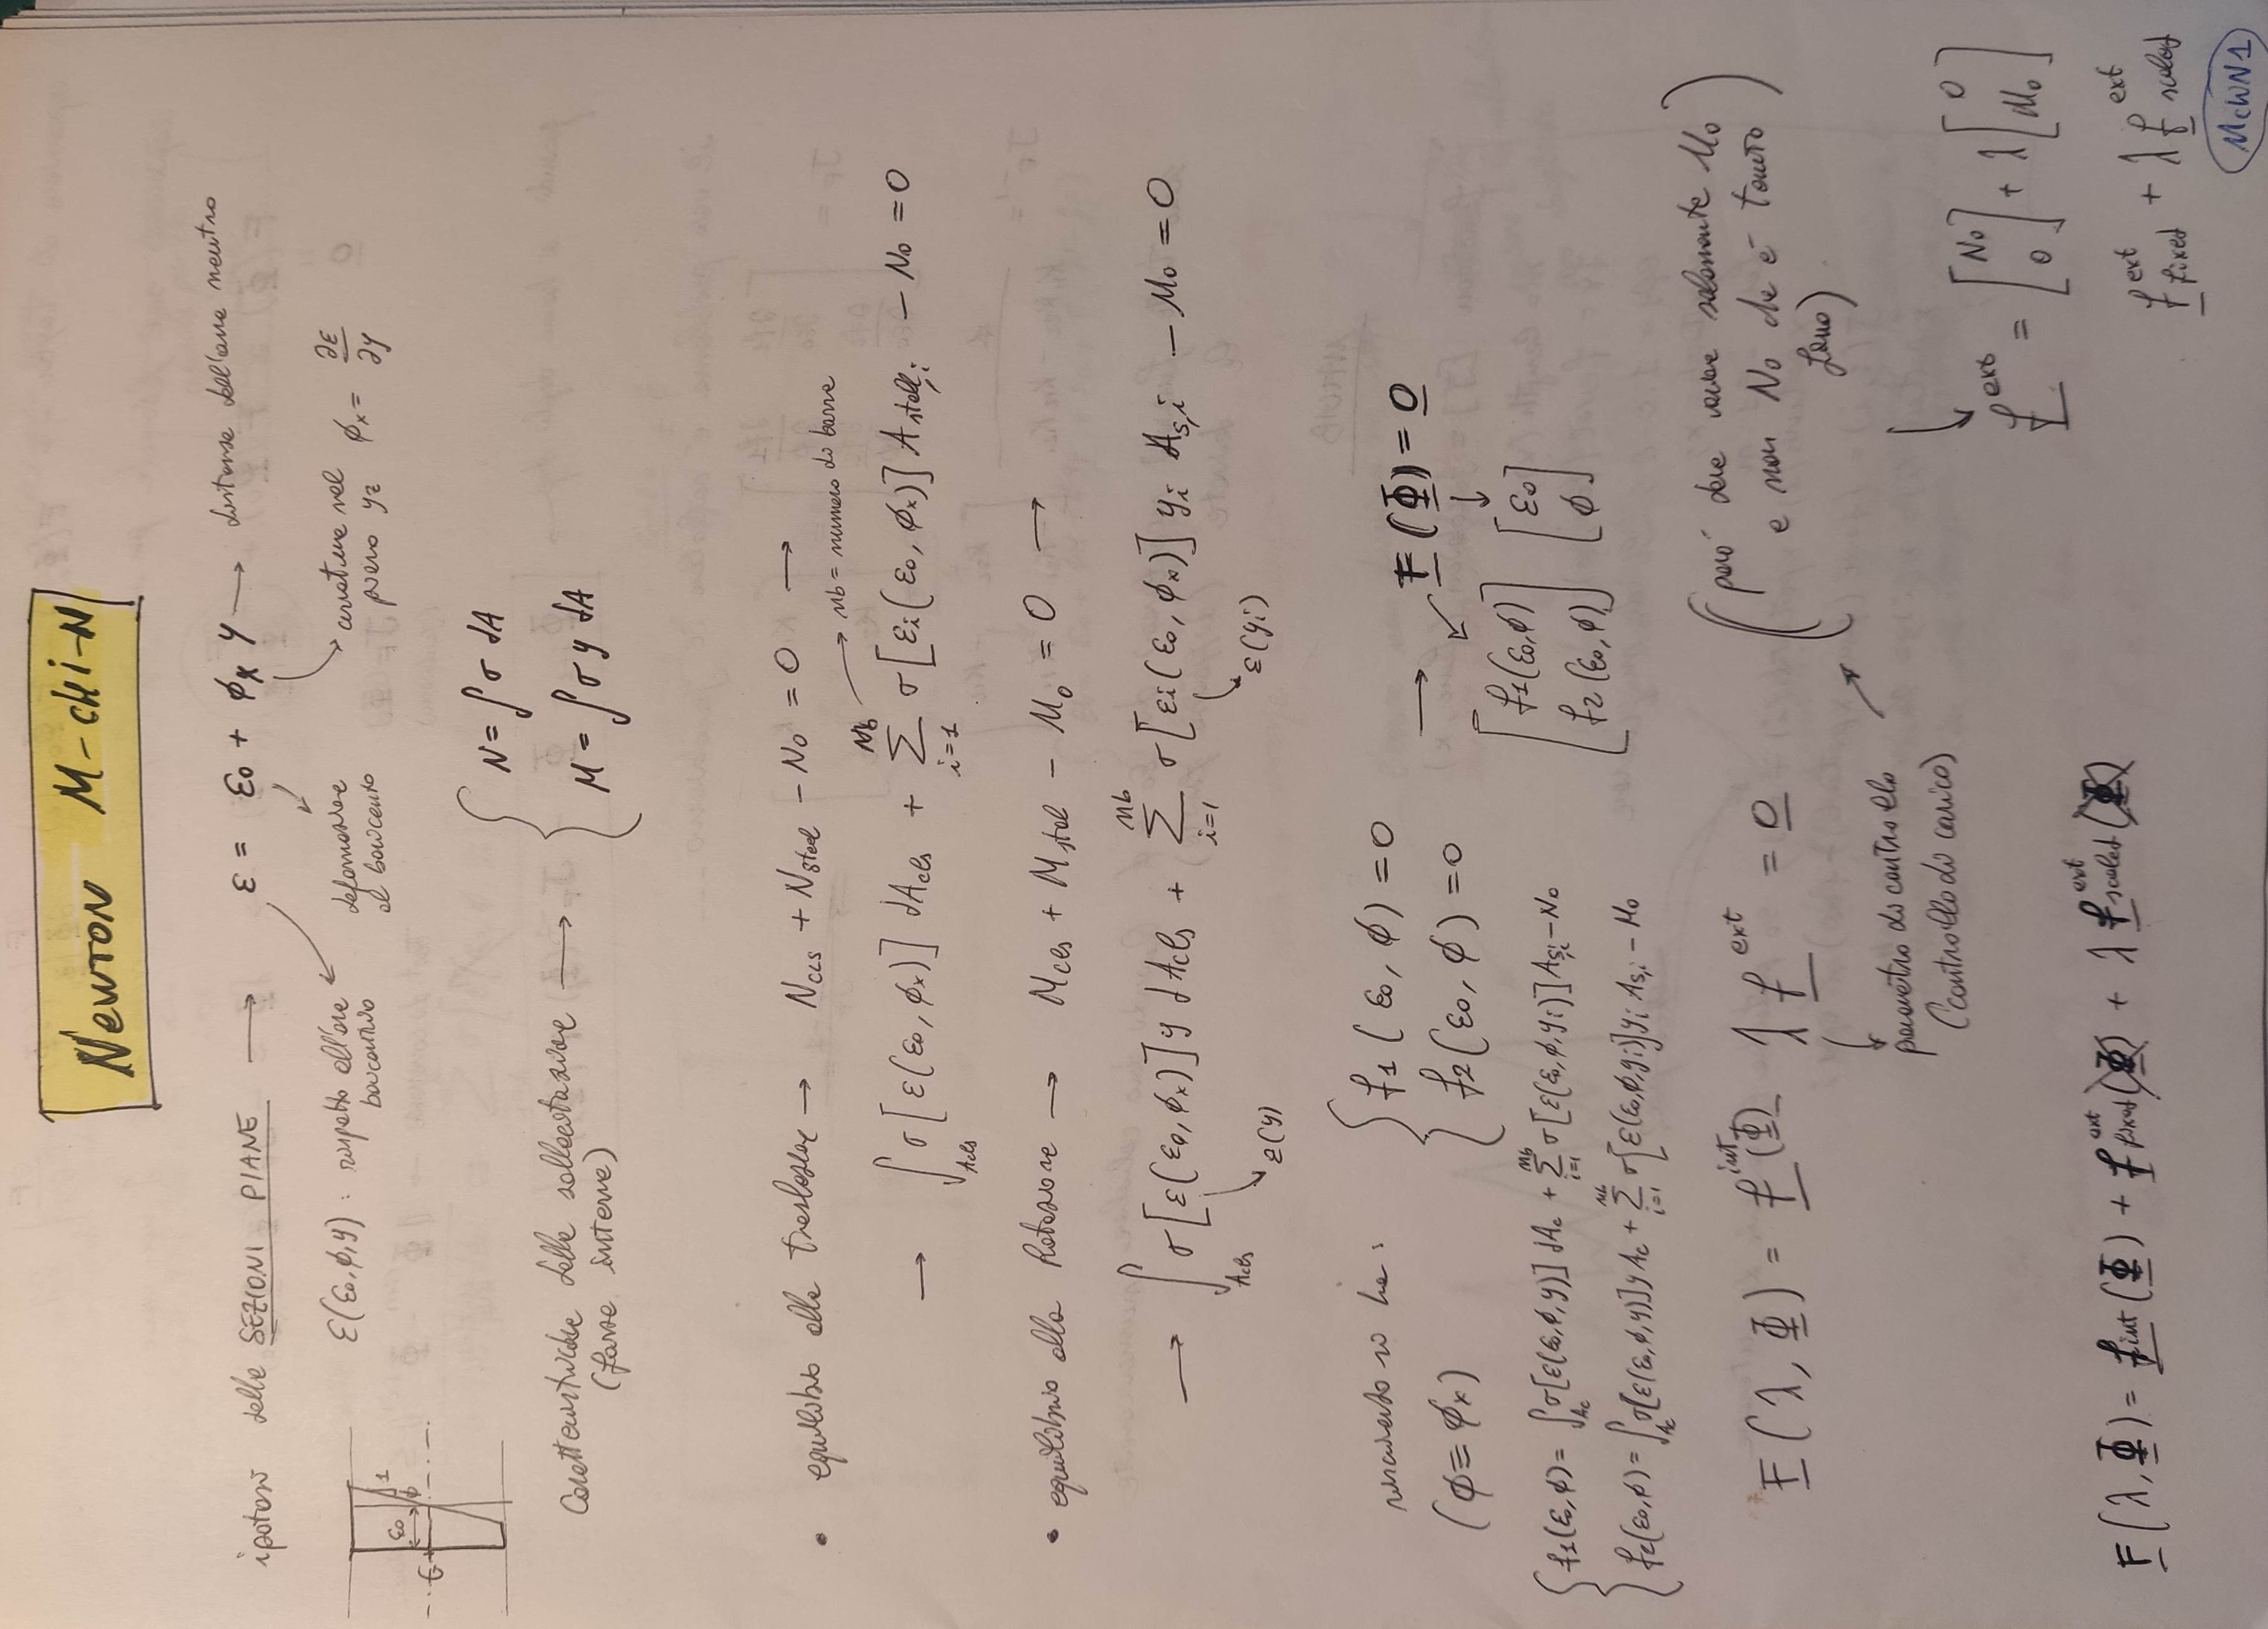 NEWTON M-CHI-N
ipotesi delle SEZIONI PIANE → ε = ε₀ + ϕₓ y → distanza dall'asse neutro
ε(ε₀,ϕ,y) : rispetto all'asse baricentrico
deformazione al baricentro
curvatura nel piano yz ϕₓ = ∂ε/∂y
ε₀ 1 ϕ
G
Caratteristiche della sollecitazione → { N = ∫ σ dA
(forze interne) M = ∫ σ y dA
• equilibrio alla traslazione → Ncls + Nsteel − N₀ = 0 →
nb = numero di barre
→ ∫Acls σ[ε(ε₀, ϕₓ)] dAcls + Σ i=1 nb σ[εi(ε₀, ϕₓ)] Asteel,i − N₀ = 0
• equilibrio alla Rotazione → Mcls + Msteel − M₀ = 0 →
→ ∫Acls σ[ε(ε₀,ϕₓ)] y dAcls + Σ i=1 nb σ[εi(ε₀, ϕₓ)] yi As,i − M₀ = 0
ε(y) ε(yi)
si ha : { f1 (ε₀, ϕ) = 0
(ϕ ≡ ϕₓ) f2 (ε₀, ϕ) = 0
→ F (Φ) = 0
[f1(ε₀,ϕ) f2(ε₀,ϕ)] [ε₀ ϕ]
{ f1(ε₀,ϕ) = ∫Ac σ[ε(ε₀,ϕ,y)] dAc + Σ i=1 nb σ[ε(ε₀,ϕ,yi)] As,i − N₀
f2(ε₀,ϕ) = ∫Ac σ[ε(ε₀,ϕ,y)] y Ac + Σ i=1 nb σ[ε(ε₀,ϕ,yi)] yi As,i − M₀
F(λ, Φ) = f int (Φ) λ f ext = 0
parametro di controllo
(controllo di carico)
(però deve variare solamente M₀
e non N₀ che è tenuto
fisso)
f ext = [N₀ 0] + λ [0 M₀]
F(λ, Φ) = f int (Φ) + f ext fixed (Φ) + λ f ext scaled (Φ)
f ext fixed + λ f ext scaled
McWN1